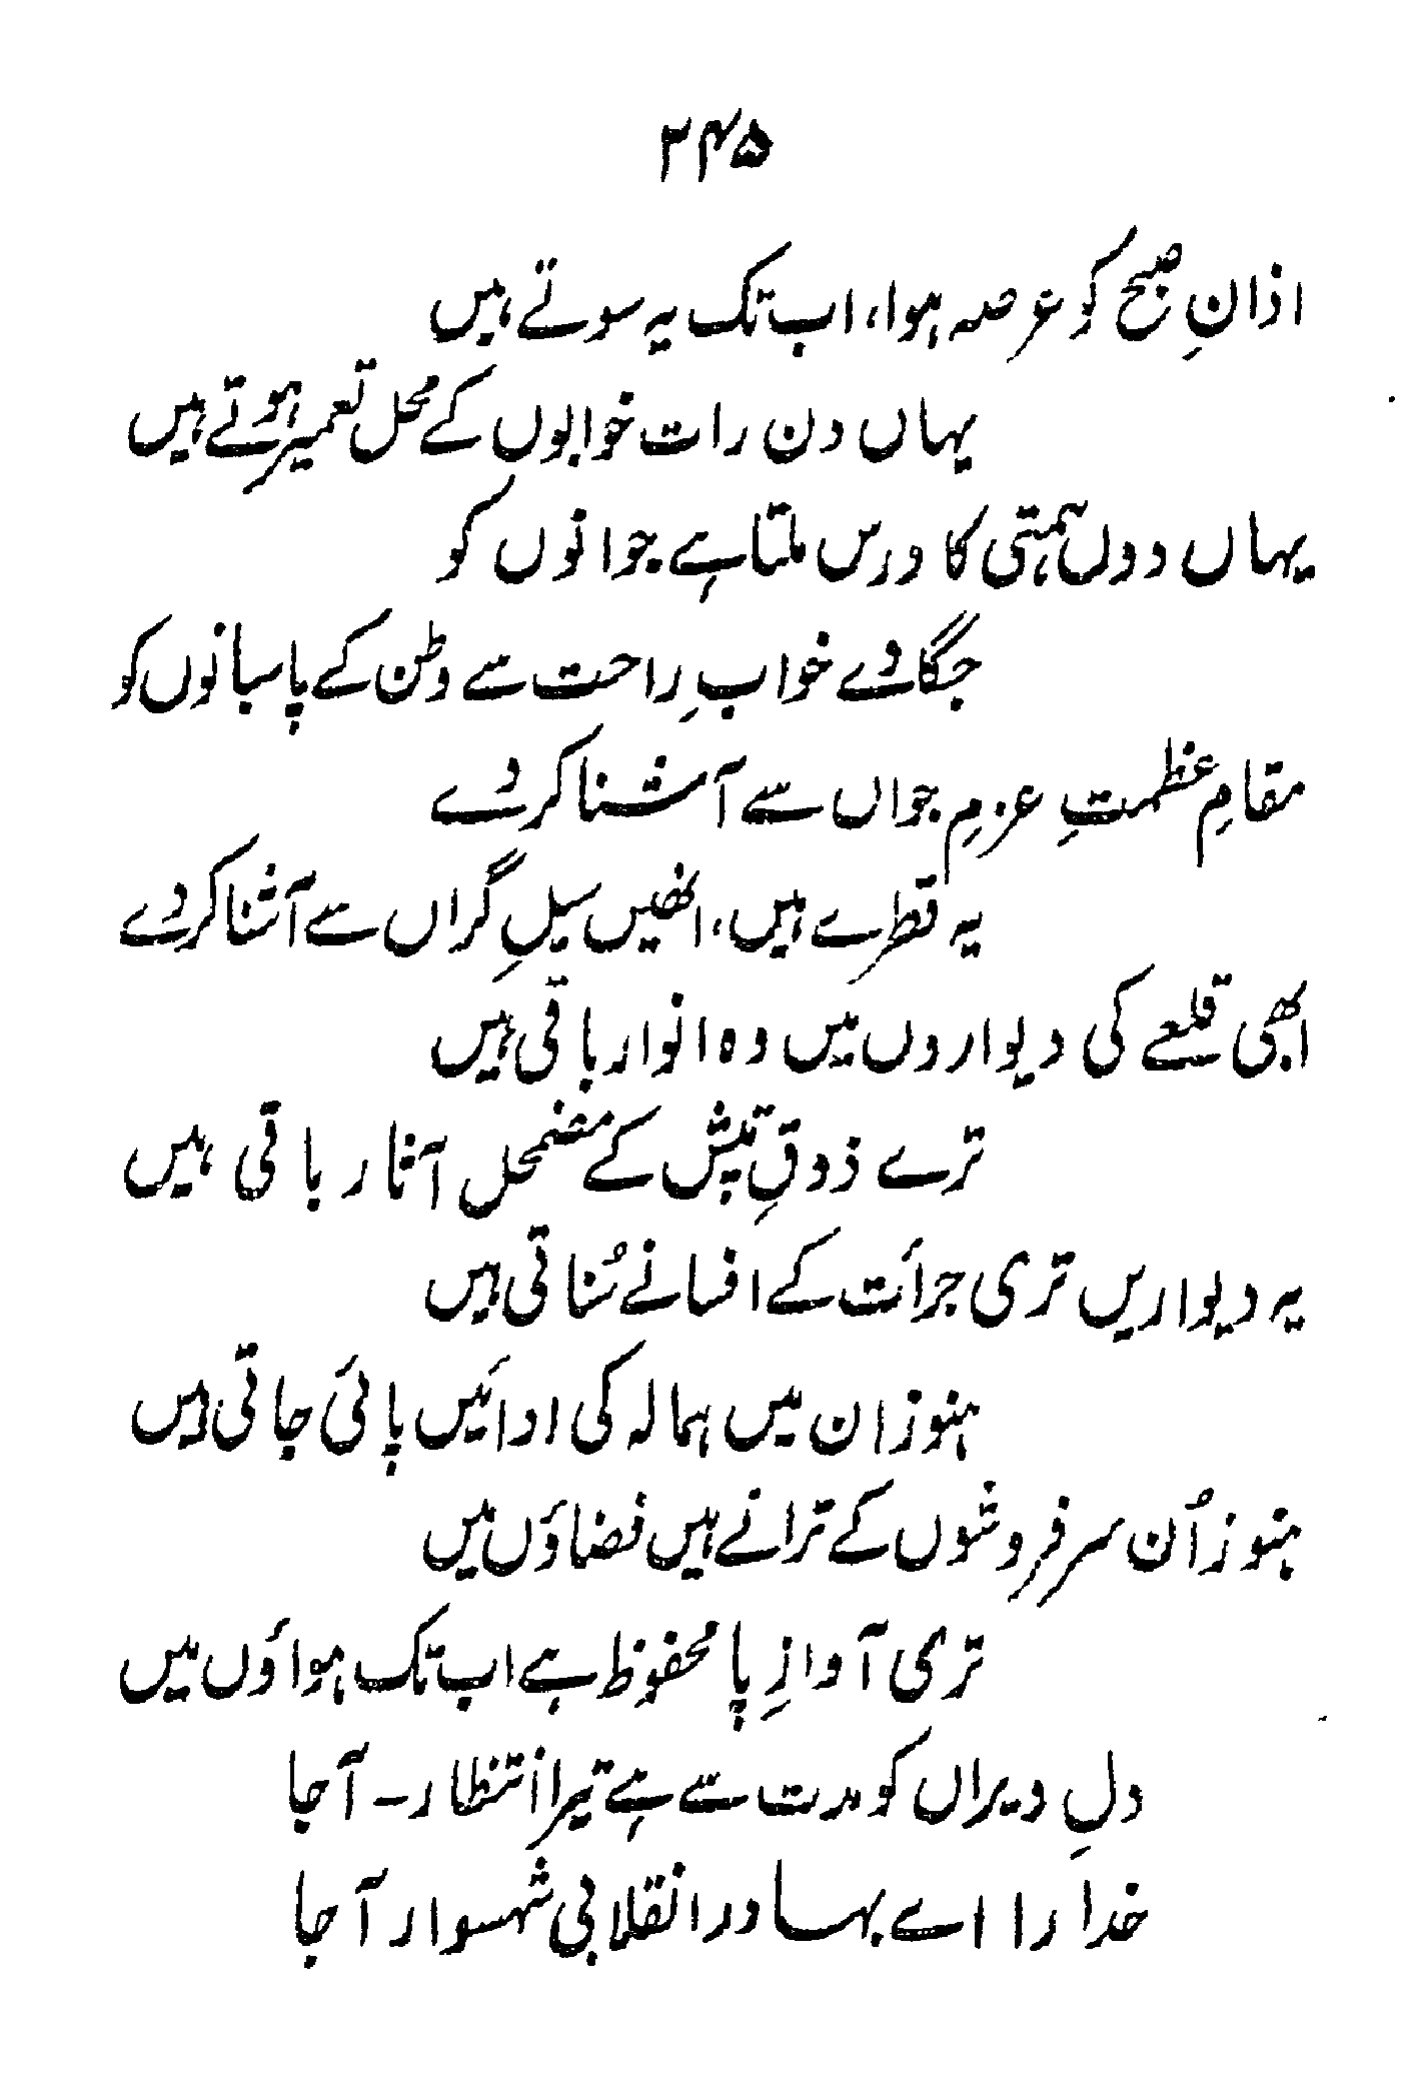 ۲۴۵
اذانِ صبح کو عرصہ ہوا، اب تک یہ سوتے ہیں
یہاں دن رات خوابوں کے محل تعمیر ہوتے ہیں
یہاں دوں ہمتی کا درس ملتا ہے جوانوں کو
جگا دے خوابِ راحت سے وطن کے پاسبانوں کو
مقامِ عظمتِ عزمِ جواں سے آشنا کر دے
یہ قطرے ہیں، انھیں سیلِ گراں سے آشنا کر دے
ابھی قلعے کی دیواروں میں وہ انوار باقی ہیں
ترے ذوقِ تپش کے مضمحل آثار باقی ہیں
یہ دیواریں تری جرأت کے افسانے سُناتی ہیں
ہنوز ان میں ہمالہ کی ادائیں پائی جاتی ہیں
ہنوز اُن سرفروشوں کے ترانے ہیں فضاؤں میں
تری آوازِ پا محفوظ ہے اب تک ہواؤں میں
دلِ ویراں کو مدت سے ہے تیرا انتظار۔ آ جا
خدا را اے بہادر انقلابی شہسوار آ جا